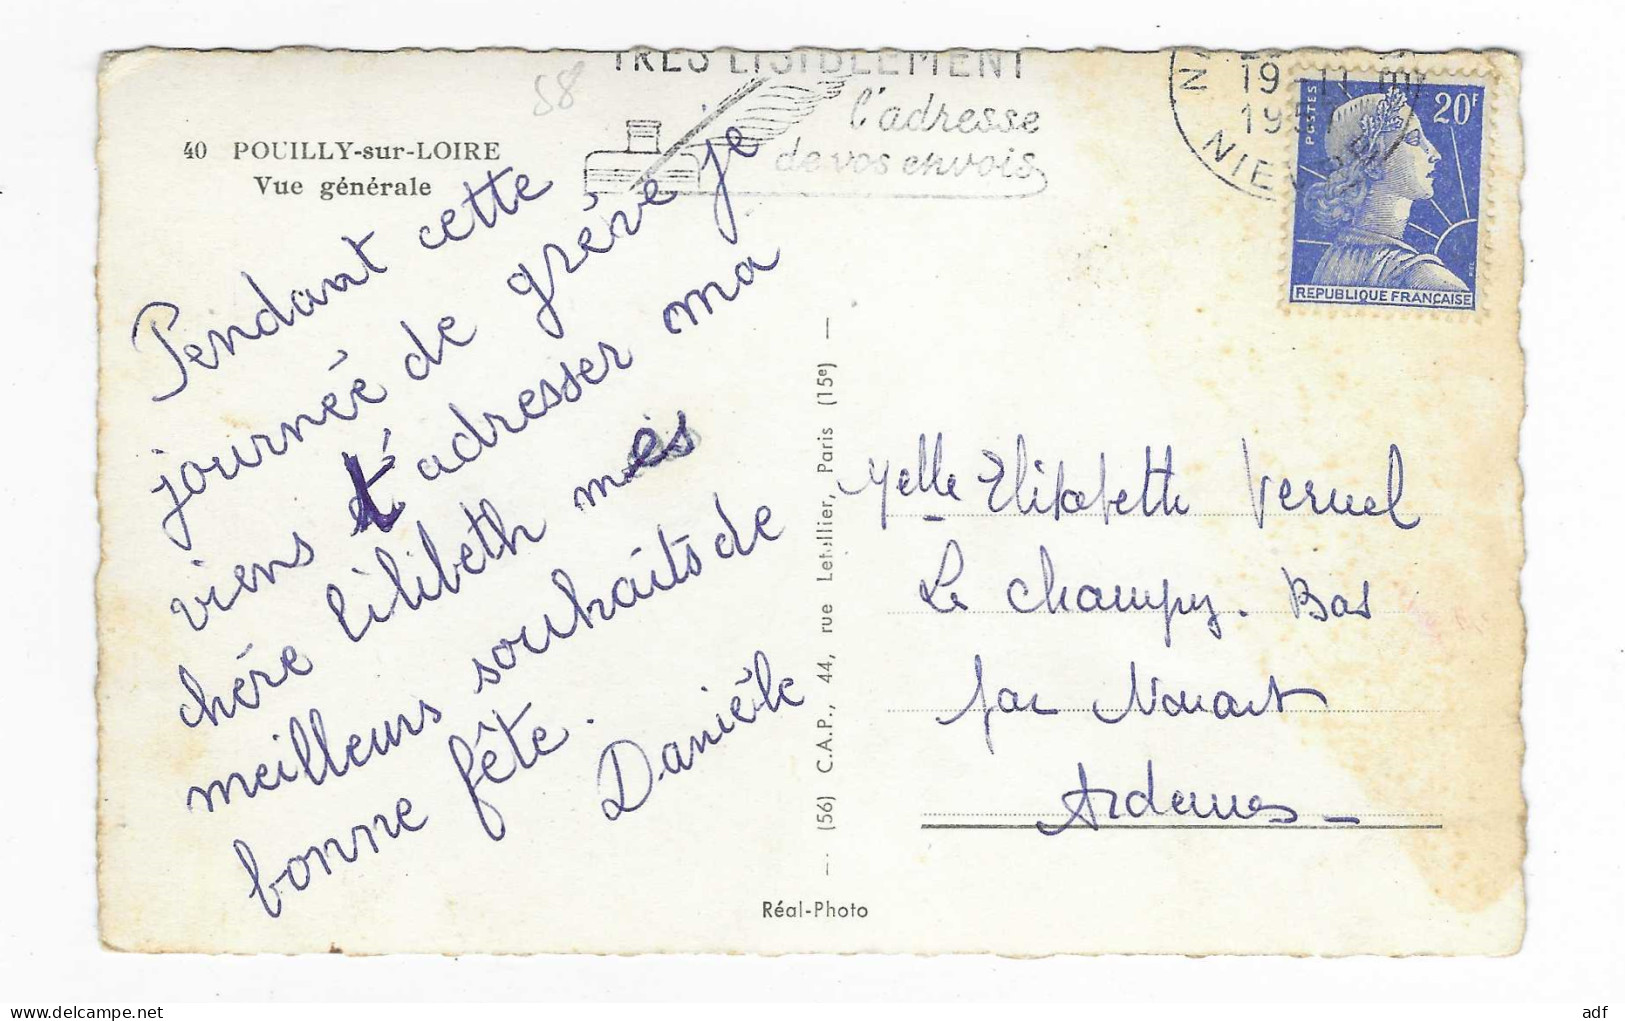 58
40 POUILLY-sur-LOIRE
Vue générale
TRES LISIBLEMENT
l'adresse
de vos envois
19 -11
1957
NIEVRE
POSTES
20F
REPUBLIQUE FRANÇAISE
Pendant cette
journéé de gréve je
viens t'adresser ma
chére Lilibeth mes
meilleurs souhaits de
bonne fête.
Danièle
(56) C.A.P., 44, rue Letellier, Paris (15e)
Réal-Photo
Melle Elisabeth Vernel
Le Champy. Bas
par Nouart
Ardennes
adf